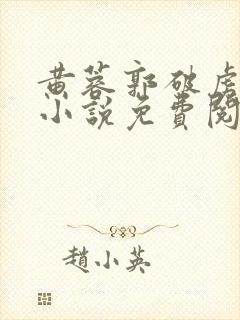 黄蓉郭破虏
小说免費閱
趙小英